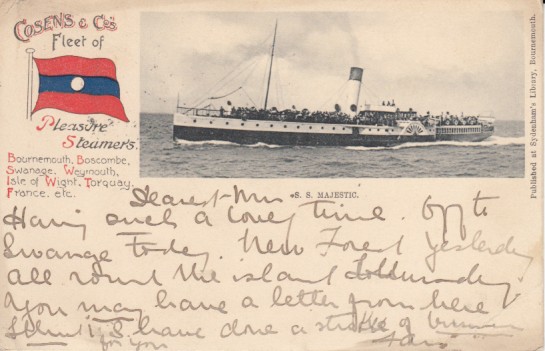 COSENS & Co's
Fleet of
Pleasure
Steamers.
Bournemouth, Boscombe,
Swanage, Weymouth,
Isle of Wight, Torquay,
France, etc.
S. S. MAJESTIC.
Published at Sydenham's Library, Bournemouth.
Dearest
Having such a lovely time. Off to
Swanage Today. New Forest yesterday
all round the island
You may have a letter from here
I have done a stroke of
for you